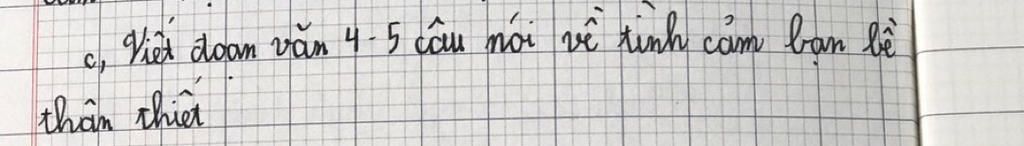 c, Viết đoạn văn 4-5 câu nói về tình cảm bạn bè
thân thiết